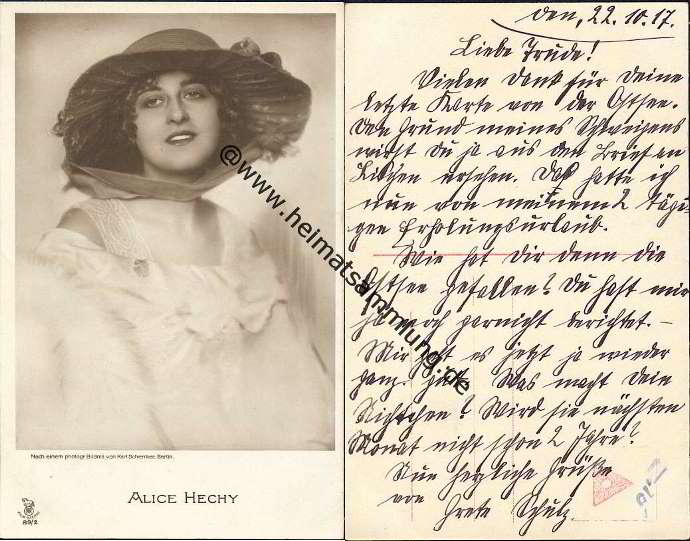 Nach einem photogr. Bildnis von Karl Schenker, Berlin.
ALICE HECHY
89/2
@www.heimatsammlung.de
den, 22.10.17.
Liebe Trude!
Vielen Dank für Deine
letzte Karte von der Ostsee.
Den Grund meines Schweigens
wirst Du ja aus den Brief an
ersehen. Das hatte ich
nun von meinem 2 tägi-
gen Erholungsurlaub.
Wie hat Dir denn die
Ostsee gefallen? Du hast mir
ja noch garnicht berichtet.–
Mir geht es jetzt ja wieder
ganz gut. Was macht Dein
Nichtchen? Wird sie nächsten
Monat nicht schon 2 Jahre?
Nun herzliche Grüße
von
Grete Schulz